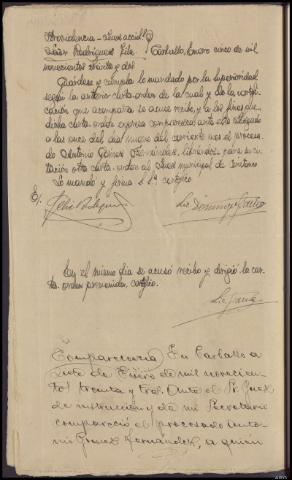 Providencia
Señor Rodríguez Carballo, Enero cinco de mil
novecientos treinta y dos
Guárdese y cúmplase lo mandado por la superioridad
según la anterior carta-orden de la cual y de la certifi-
cación que acompaña se acuse recibo, y a los fines que
dicha carta-orden expresa comparezca ante este Juzgado
a las once del día nueve del corriente mes el procesa-
do Antonio Gómez Fernández, librándose para su ci-
tación otra carta-orden al Juez municipal de
Lo mandó y firma S. Sª. certifico
En el mismo día se acusó recibo y dirigió la car-
ta-orden prevenidos, certifico.
Comparecencia En Carballo a
siete de Enero de mil novecien-
tos treinta y tres. Ante el Sr. Juez
de instrucción y de mi Secretario
compareció el procesado Anto-
nio Gómez Fernández, a quien